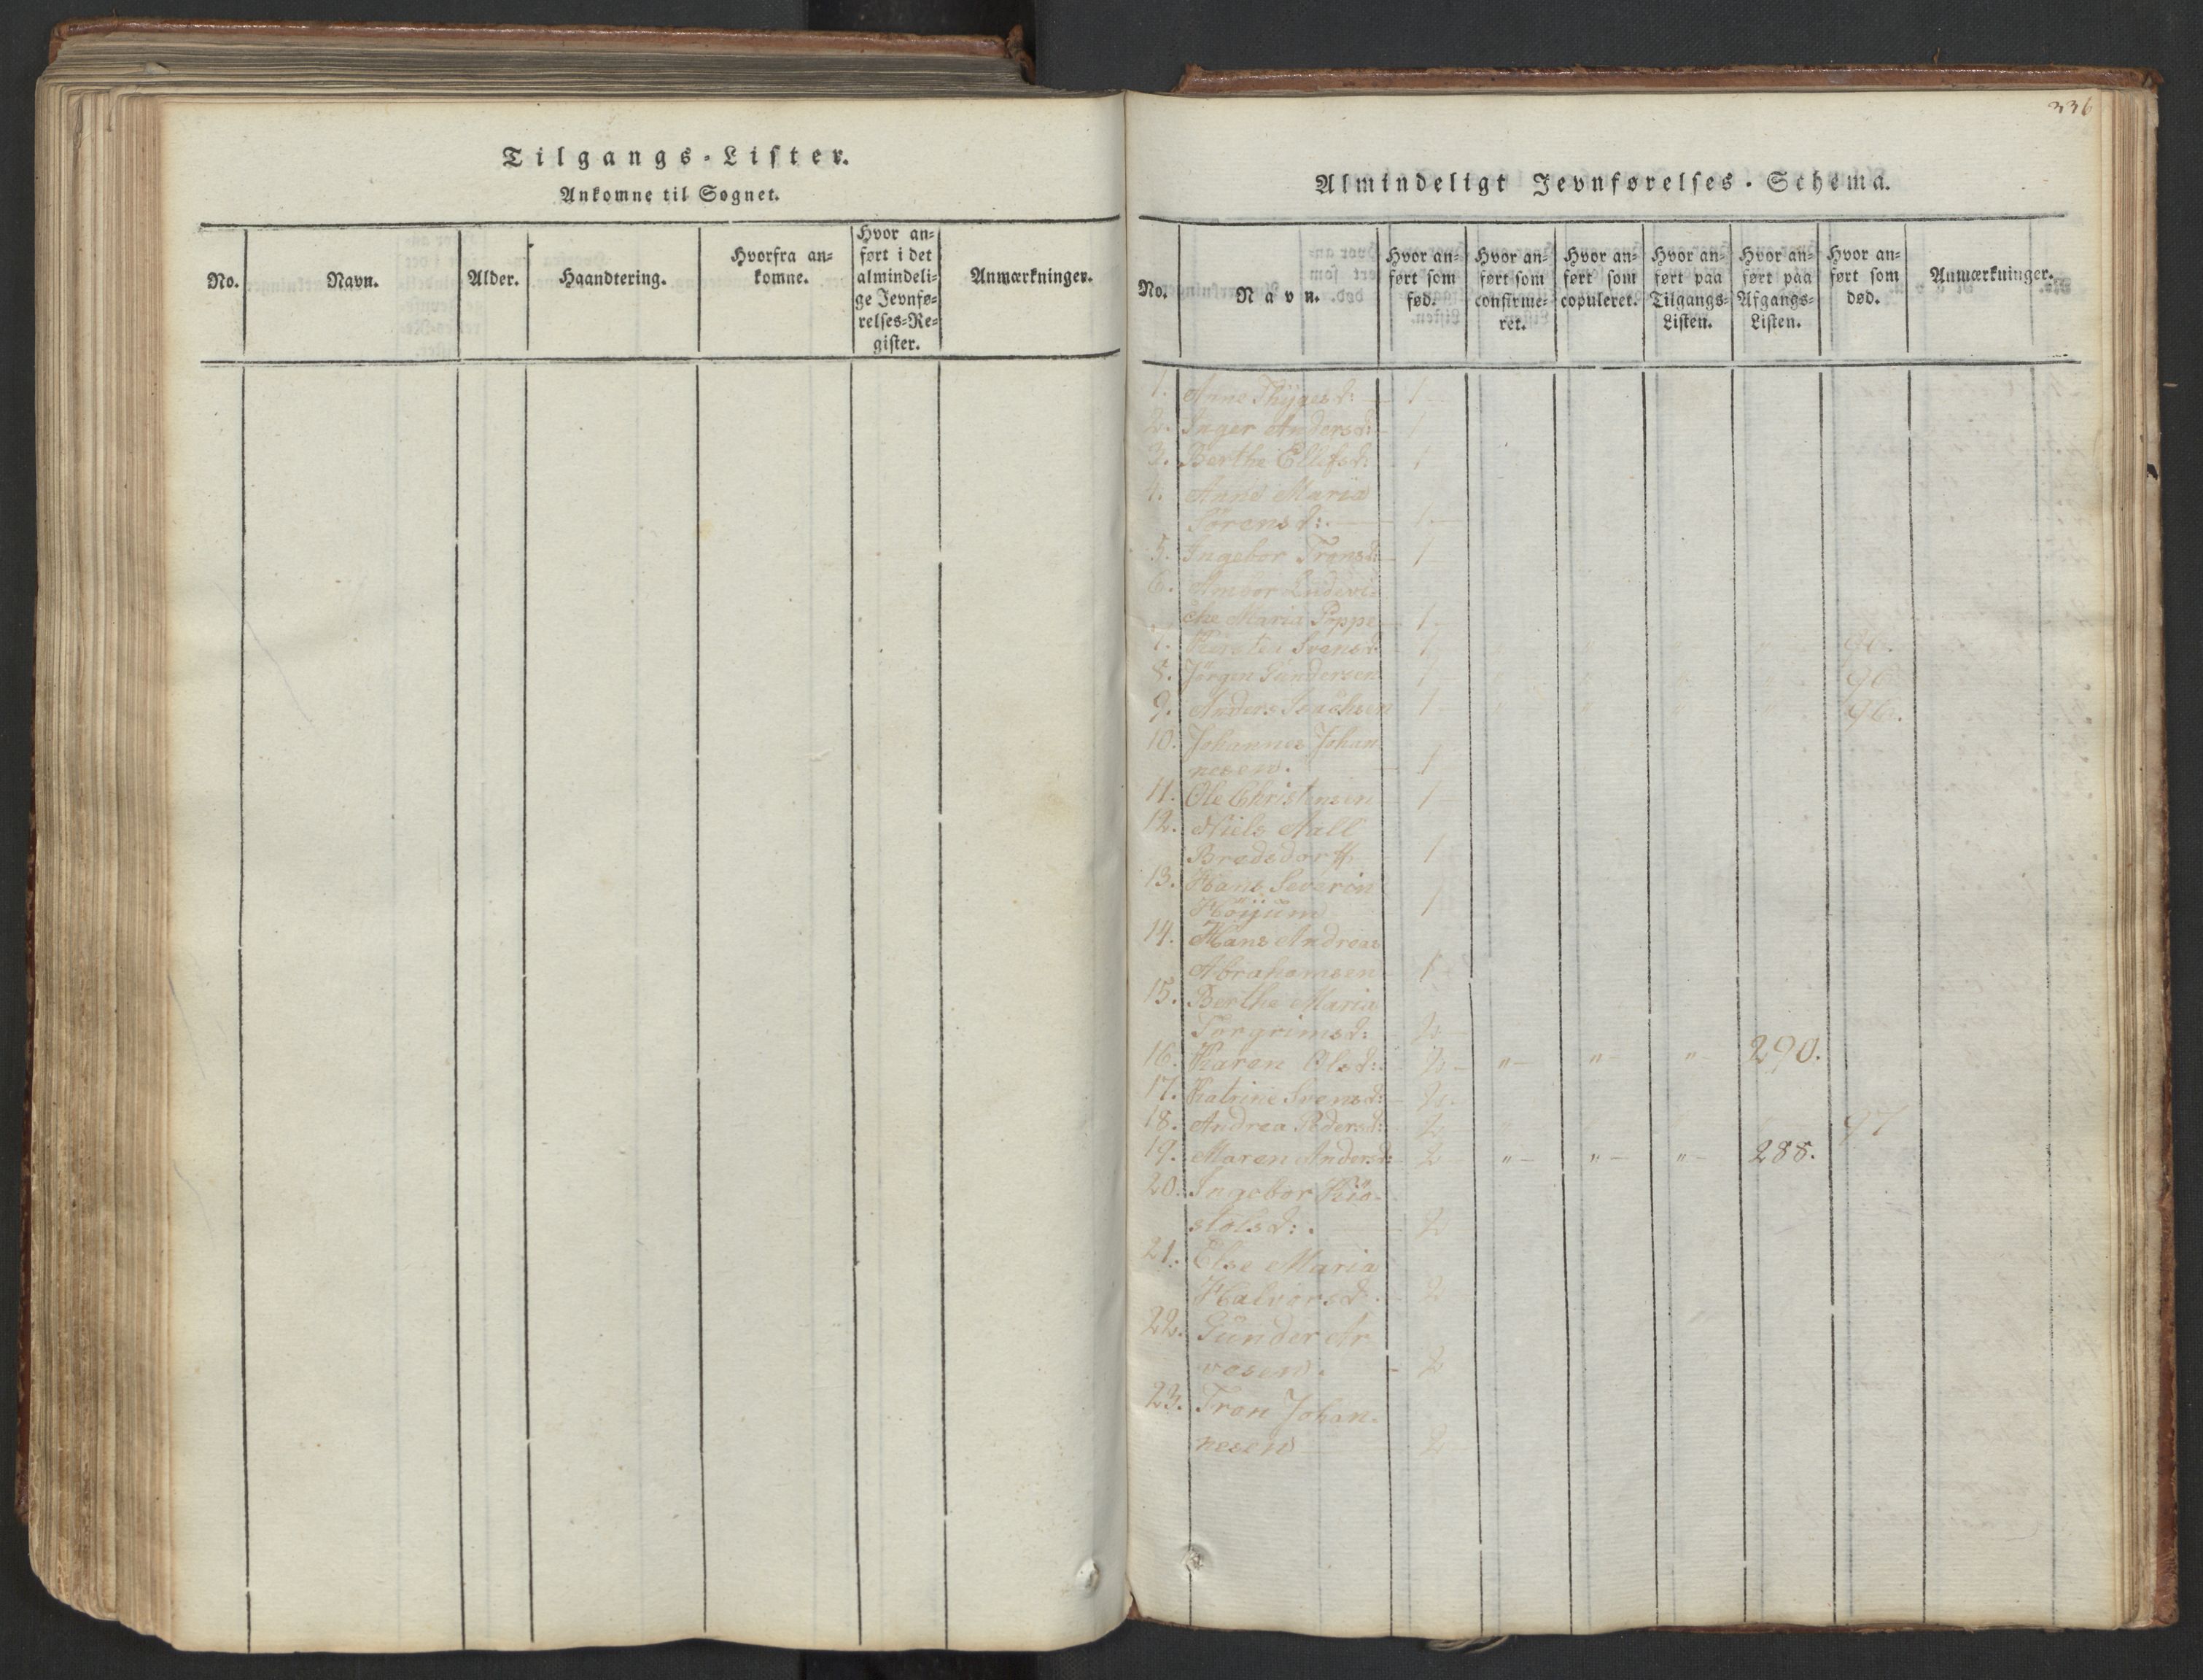 Tilgangs-Lister.
Ankomne til Sognet.
No.
Navn.
Alder.
Haandtering.
Hvorfra an-
komne.
Hvor an-
ført i det
almindeli-
ge Jevnfø-
relses-Re-
gister.
Anmærkninger.
336
Almindeligt Jevnførelses-Schema.
No.
Navn.
Hvor an-
ført som
fød.
Hvor an-
ført som
confirme-
ret.
Hvor an-
ført som
copuleret.
Hvor an-
ført paa
Tilgangs-
Listen.
Hvor an-
ført paa
Afgangs-
Listen.
Hvor an-
ført som
død.
Anmærkninger.
1. Anne Thygesd: 1
2. Inger Andersd: 1
3. Berthe Ellefsd: 1
4. Anne Maria
Sørensd: 1
5. Ingebor Tronsd: 1
6.
che Maria Poppe 1
7. Kirsten Svensd: 1 " " " "
8. Jørgen Gundersen 1 " " " " 96
9. Anders 1 " " " 96.
10. Johannes Johan
nesen. 1
11. Ole Christensen 1
12. Niels Aall
Bredsdorff 1
13. Hans Severin
Höyum 1
14. Hans Andreas
Abrahamsen 1
15. Berthe Maria
Torgrimsd: 2
16. Karen Olsd: 2 " " " 290.
17. Katrine Svensd: 2.
18. Andrea Pedersd: 2 97
19. Maren Andersd: 2 " " " 288.
20. Ingebor Kiø-
stolsd: 2
21. Else Maria
Halvorsd: 2
22. Gunder Ar
vesen. 2
23. Tron Johan-
nesen 2